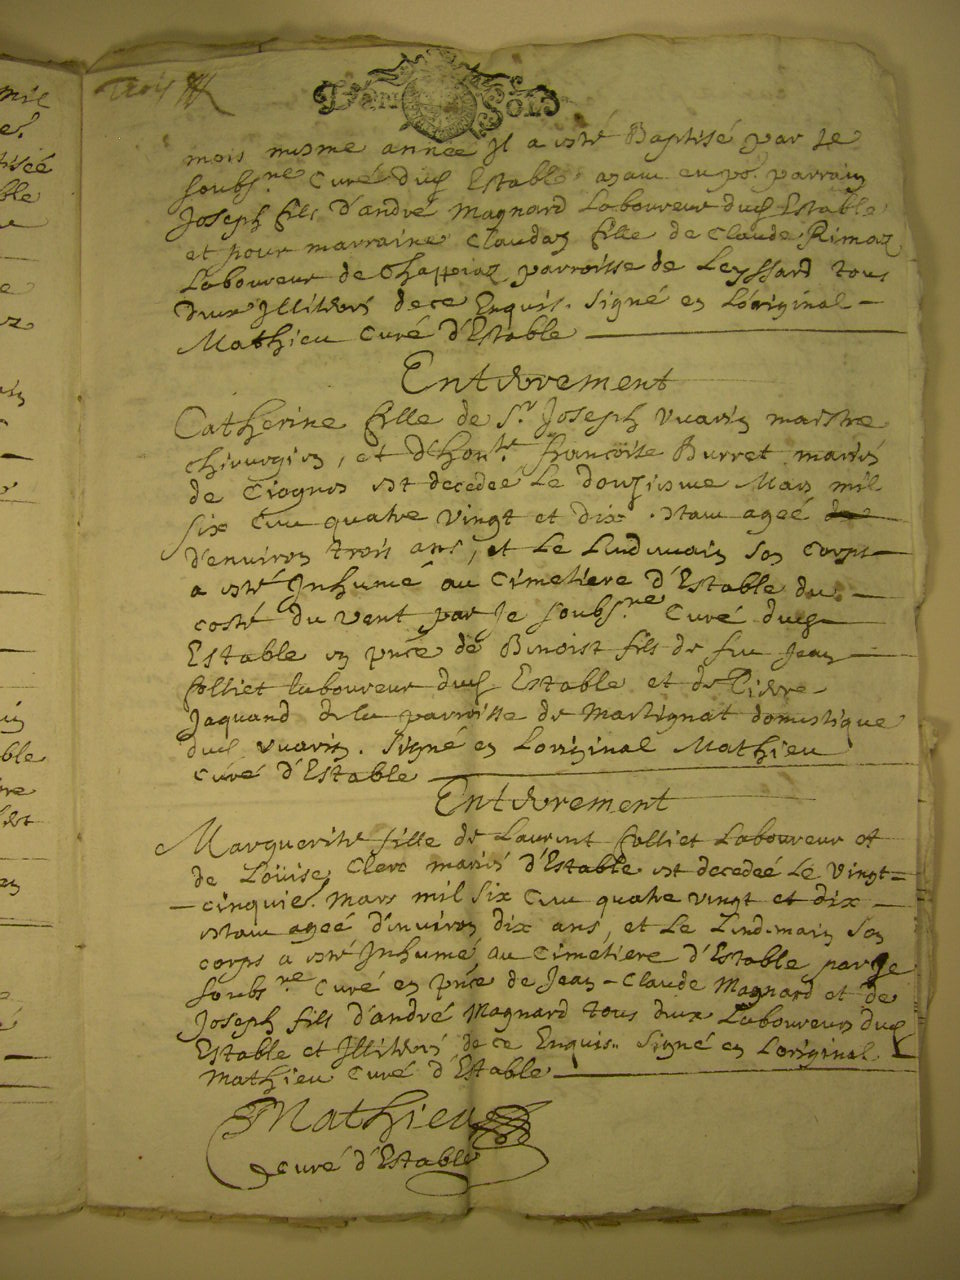 Trois
D'un Sol
mois mesme année Il a esté Baptisé par Je
soubs.ne Curé dud Estable ayant eu po.r parrain
Joseph fils D'andré Magnard Laboureur dud Estable
et pour marraine Claudaz fille de Claude Rimaz
Laboureur de Chappiaz parroisse de Leyssard tous
deux Illiterés de ce Enquis. Signé en L'original
Mathieu Curé D'Estable
Enterrement
Catherine fille de S.r Joseph Vuarin maistre
chirurgien, et D'hon.te francoise Burret mariés
de Ciognes est decedeé Le Douziesme Mars mil
six Cent quatre Vingt et dix . estant ageé
d'environ trois ans, et Le Lendemain son Corps
a esté Inhumé au Cimetiere d'Estable du
costé du vent par Je soubs.ne Curé dud
Estable en pñce de Benoist fils de feu Jean
Colliet laboureur dud Estable et de Pierre
Jaquand de la parroisse de Martignat domestique
dud Vuarin. Signé en Loriginal Mathieu
curé d'Estable
Enterrement
Marguerite fille de Laurent Colliet Laboureur et
de Loüise Clerc mariés d'Estable est decedeé Le Vingt=
cinquie. Mars mil Six Cent quatre vingt et dix
estant ageé d'environ dix ans, et Le Lendemain son
corps a esté Inhumé au Cimetiere d'Estable par Je
soubs.ne Curé en pñce de Jean-Claude Magnard et de
Joseph fils d'andré Magnard tous deux Laboureurs dud
Estable et Illiterés de ce Enquis.. Signé en Loriginal
Mathieu Curé d'Estable
Mathieu
curé d'Estable